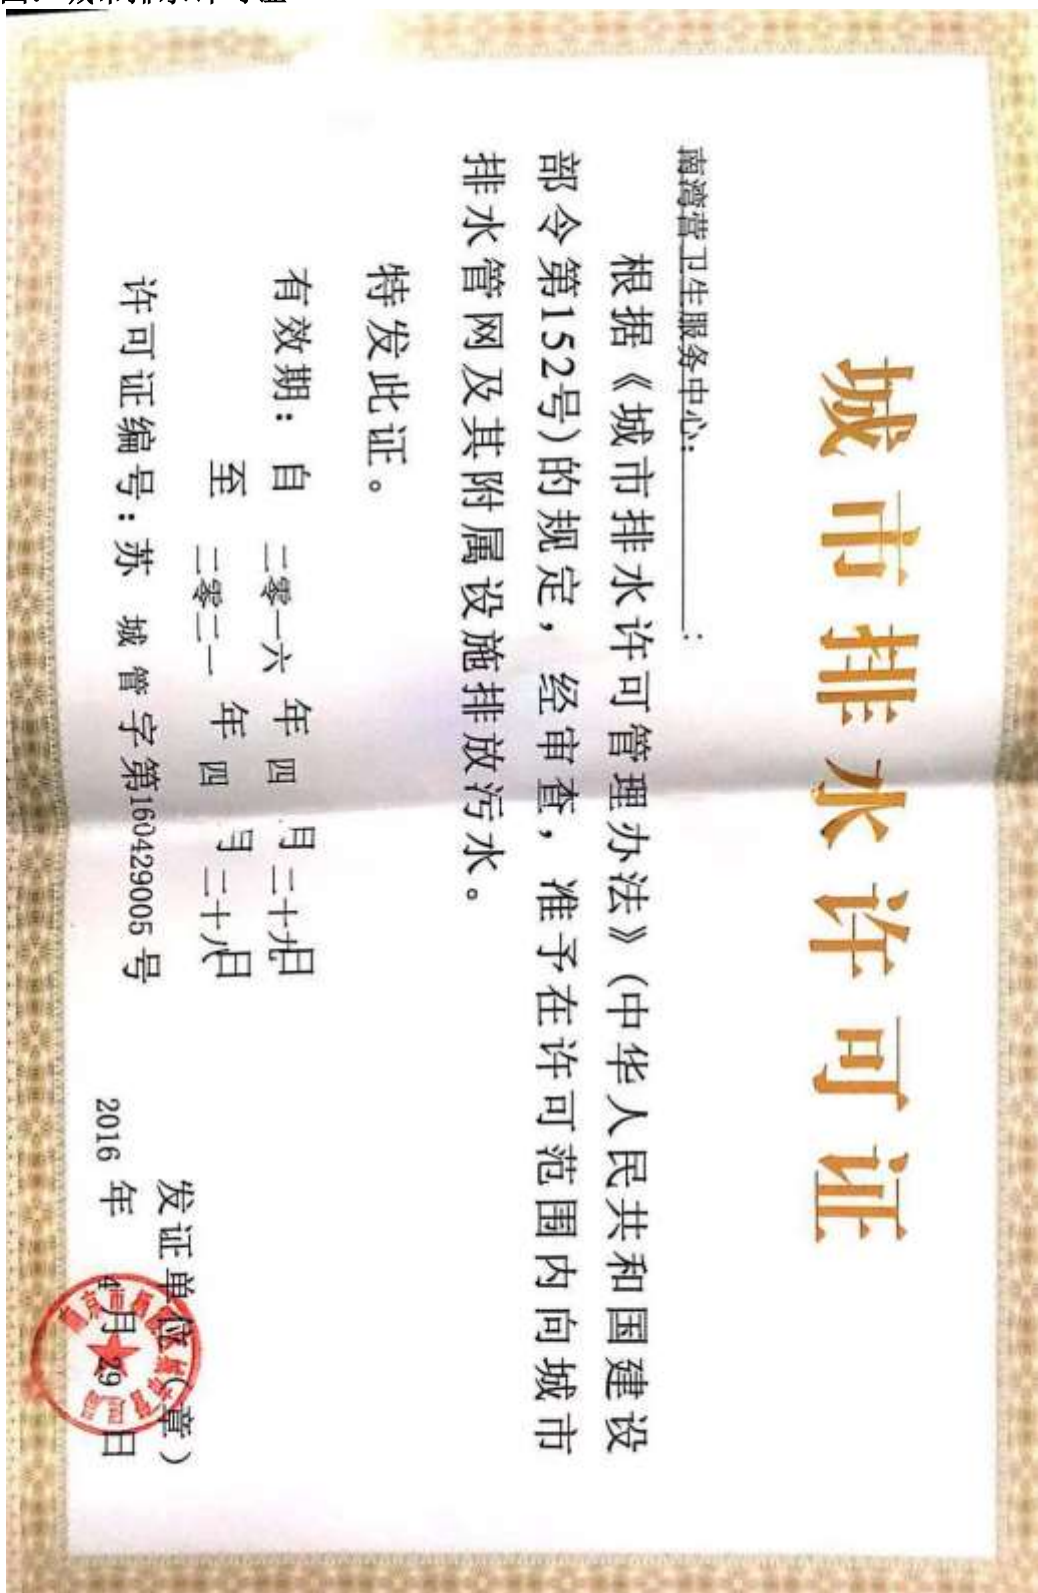 城市排水许可证
南湾营卫生服务中心:　　　:
根据《城市排水许可管理办法》(中华人民共和国建设
部令第152号)的规定,经审查,准予在许可范围内向城市
排水管网及其附属设施排放污水。
特发此证。
有效期:自 二零一六 年 四 月 二十九日
至 二零二一 年 四 月 二十八日
许可证编号:苏 城 管 字第160429005 号
发证单位(章)
2016 年 4 月 29 日